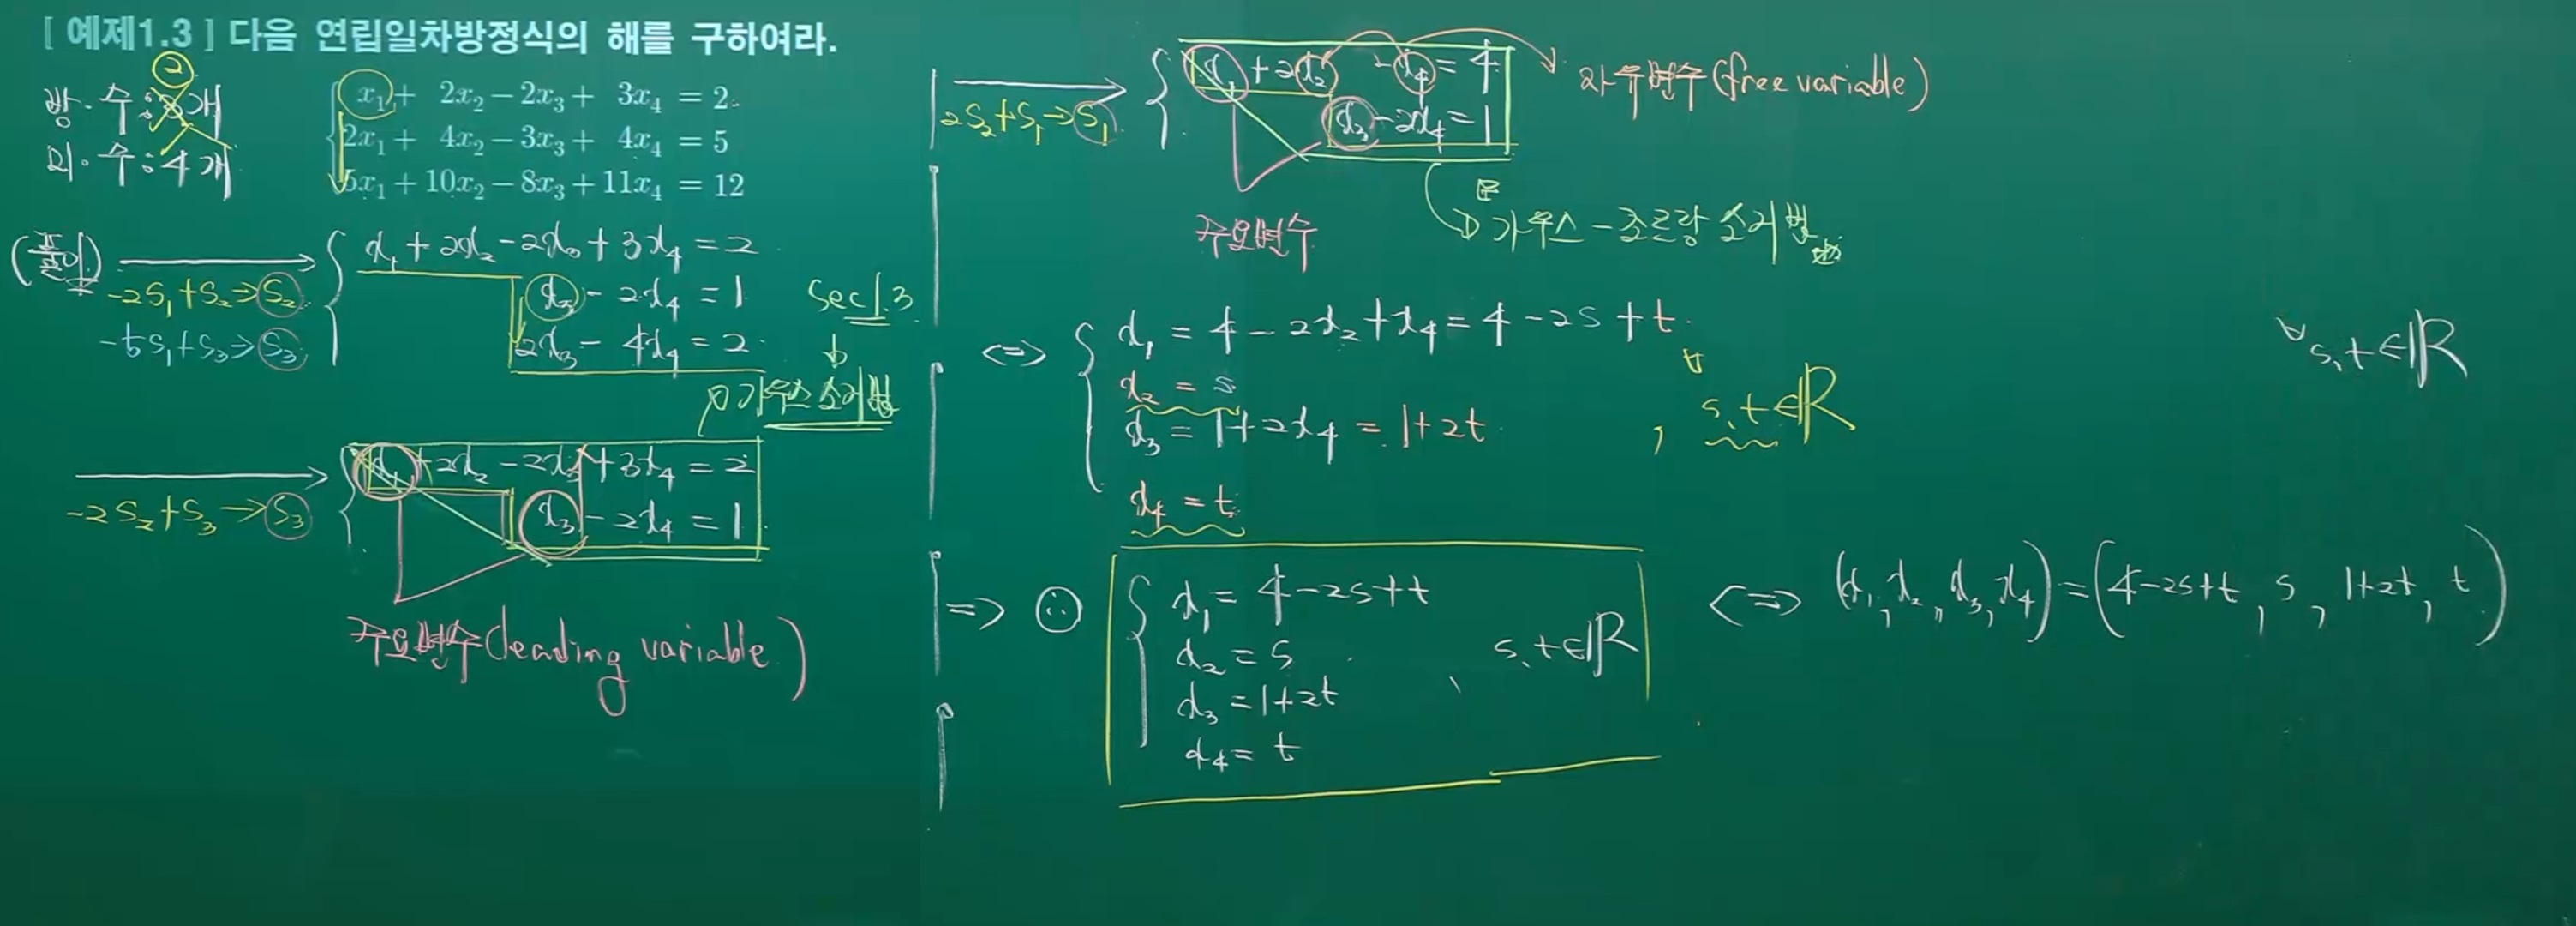 [ 예제1.3 ] 다음 연립일차방정식의 해를 구하여라.
②
방·수:3개
미·수:4개
x₁ + 2x₂ − 2x₃ + 3x₄ = 2
2x₁ + 4x₂ − 3x₃ + 4x₄ = 5
5x₁ + 10x₂ − 8x₃ + 11x₄ = 12
(풀이)
-2S₁+S₂→S₂
-5S₁+S₃→S₃
x₁+2x₂-2x₃+3x₄=2
x₃-2x₄=1
2x₃-4x₄=2
sec1.3
가우스 소거법
-2S₂+S₃→S₃
x₁+2x₂-2x₃+3x₄=2
x₃-2x₄=1
주요변수(leading variable)
2S₂+S₁→S₁
x₁+2x₂ -x₄=4
x₃-2x₄=1
자유변수(free variable)
주요변수
가우스-조르당 소거법
⇔
x₁=4-2x₂+x₄=4-2s+t
x₂=s
x₃=1+2x₄=1+2t
x₄=t
, ∀s,t∈ℝ
∀s,t∈ℝ
⇒ ∴
x₁=4-2s+t
x₂=s
x₃=1+2t
x₄=t
, s,t∈ℝ
⇔ (x₁,x₂,x₃,x₄)=(4-2s+t, s, 1+2t, t)